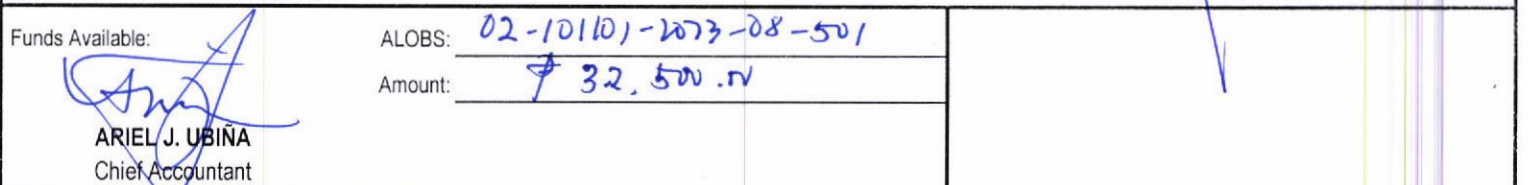 Funds Available:
ALOBS: 02-101101-2023-08-501
Amount: ₱ 32,500.00
ARIEL J. UBIÑA
Chief Accountant